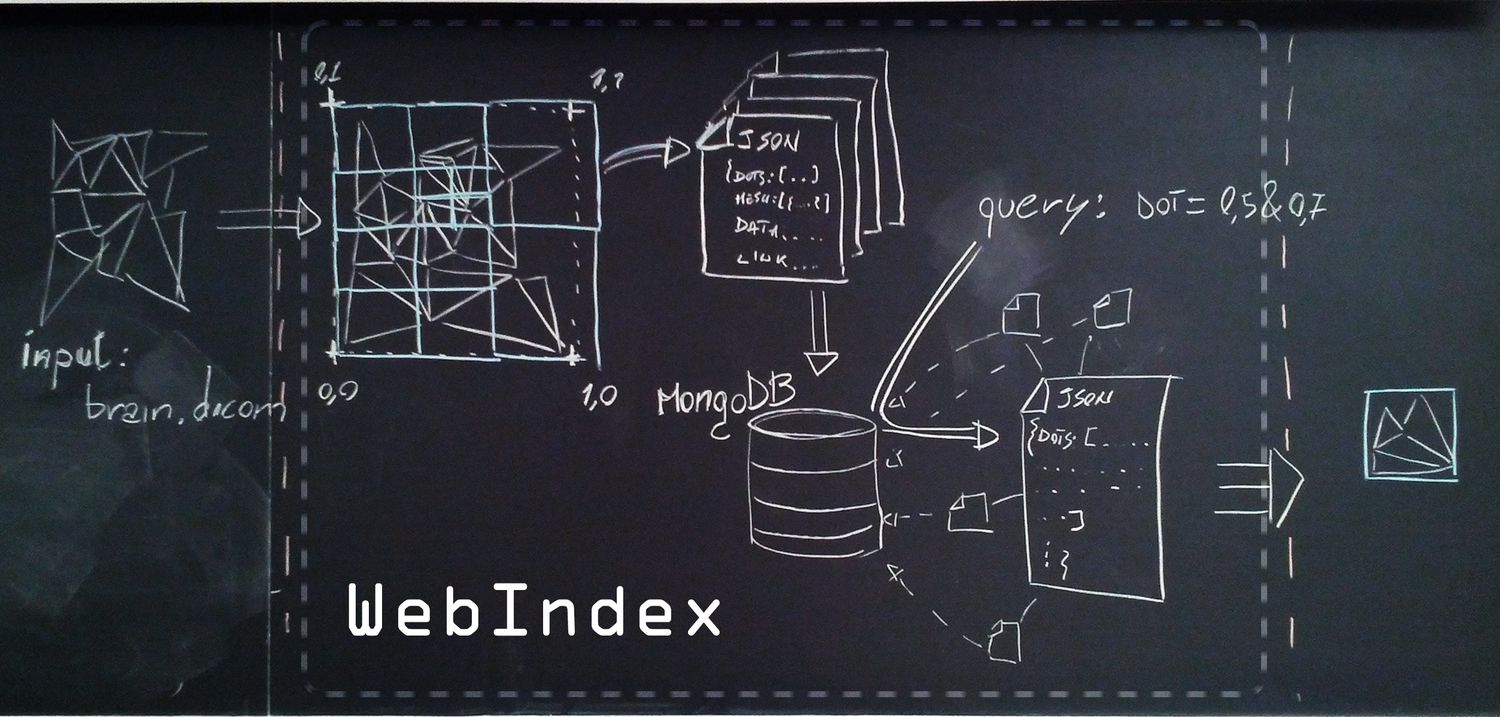 input:
brain.dicom
0,1
1,1
0,0
1,0
JSON
{DOTS:[..]
MESH:[{...}]
DATA.....
LINK...
query: DOT = 0,5&0,7
MongoDB
JSON
{DOTS:[.....
..]
:}
WebIndex